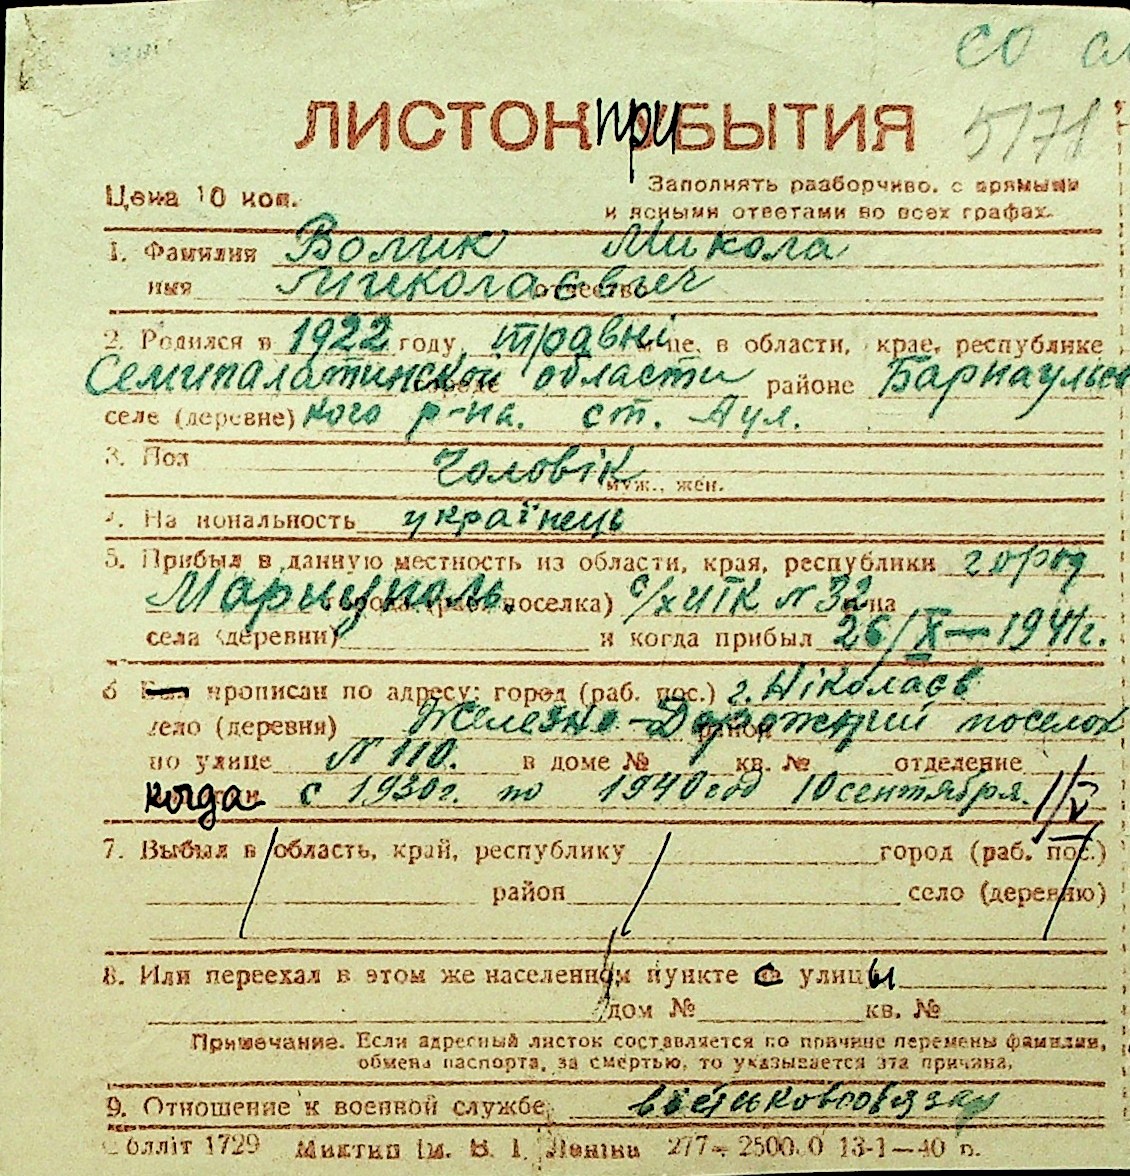 СО
ЛИСТОК при БЫТИЯ 5/71
Цена 10 коп.
Заполнять разборчиво, с прямыми
и ясными ответами во всех графах.
1. Фамилия Волик Микола
имя Миколаєвыч отчество
2. Родился в 1922 году, травні м-це, в области, крае, республике
Семипалатинской области районе Барнаульс
селе (деревне) кого р-на. ст. Аул.
3. Пол чоловік
муж., жен.
4. На иональность українець
5. Прибыл в данную местность из области, края, республики город
Мариуполь. города (раб. поселка) с/х ИТК № 32 на
села (деревни) и когда прибыл 26/X—1941г.
6 прописан по адресу: город (раб. пос.) г. Ніколаєв
село (деревня) Железно-Дорожный поселок район
по улице № 110. в доме № кв. № отделение
когда с 1930г. по 1940 год 10 сентября. 1/V
7. Выбыл в область, край, республику город (раб. пос.)
район село (деревню)
8. Или переехал в этом же населенном пункте с улицы
дом № кв. №
Примечание. Если адресный листок составляется по причине перемены фамилии,
обмена паспорта, за смертью, то указывается эта причина.
9. Отношение к военной службе військовообязан
Облліт 1729 Миктип ім. В. І. Леніна 277—2500.0 13-1—40 р.